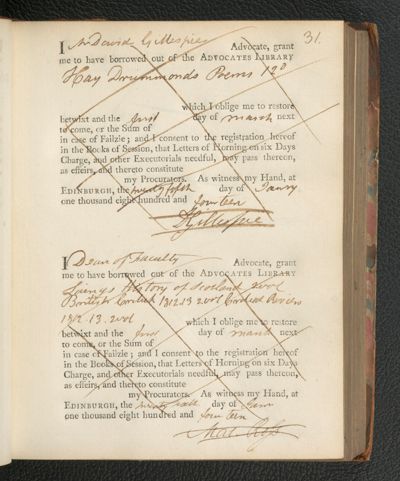 31.
I Mr David Gillespie Advocate, grant
me to have borrowed out of the ADVOCATES LIBRARY
Hay Drummonds Poems 12º
which I oblige me to restore
betwixt and the first day of March next
to come, or the Sum of
in case of Failzie; and I consent to the registration hereof
in the Books of Session, that Letters of Horning on six Days
Charge, and other Executorials needful, may pass thereon,
as effeirs, and thereto constitute
my Procurators. As witness my Hand, at
EDINBURGH, the twenty fifth day of Janry
one thousand eight hundred and fourteen
DGillespie
I Dean of Faculty Advocate, grant
me to have borrowed out of the ADVOCATES LIBRARY
Laings History of Scotland 4vol
British Critick 1812.13 2vol Critical Review
1812.13.2vol which I oblige me to restore
betwixt and the first day of March next
to come, or the Sum of
in case of Failzie; and I consent to the registration hereof
in the Books of Session, that Letters of Horning on six Days
Charge, and other Executorials needful, may pass thereon,
as effeirs, and thereto constitute
my Procurators. As witness my Hand, at
EDINBURGH, the day of Janr
one thousand eight hundred and fourteen
Mat Ross